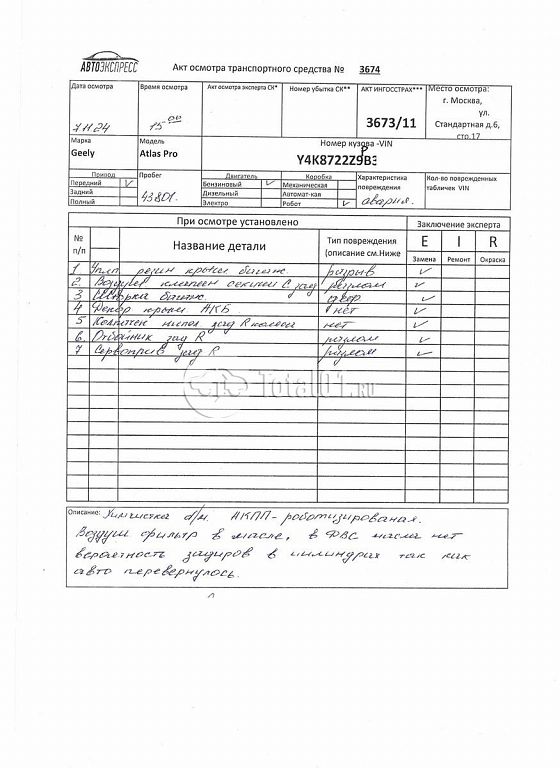 АВТОЭКСПРЕСС
Акт осмотра транспортного средства № 3674
Дата осмотра
Время осмотра
Акт осмотра эксперта СК*
Номер убытка СК**
АКТ ИНГОССТРАХ***
Место осмотра:
г. Москва,
ул.
Стандартная д.6,
стр.17
7.11.24
15 00
3673/11
Марка
Модель
Номер кузова -VIN
Geely
Atlas Pro
Y4K8722Z9
Привод
Пробег
Двигатель
Коробка
Характеристика
повреждения
Кол-во поврежденных
табличек VIN
Передний
Бензиновый
Механическая
Задний
43801.
Дизельный
Автомат-кая
авария.
Полный
Электро
Робот
При осмотре установлено
Заключение эксперта
№
п/п
Название детали
Тип повреждения
(описание см.Ниже
E I R
Замена
Ремонт
Окраска
1 Упл резин крыш багаж разрыв
2. клапан секции зад разлом
3 Шторка багаж дефор
4 Декор крыш АКБ нет
5 Колпачек нипел зад R колеса нет
6. Отбойник зад R разлом
7 Сервоприв зад R разлом
Total01.RU
Описание: Химчистка а/м. АКПП-роботизированая.
Воздуш фильтр в масле, в ДВС масла нет
вероятность задиров в цилиндрах так как
авто перевернулось.